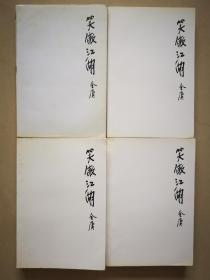 笑傲江湖
金庸
笑傲江湖
金庸
笑傲江湖
金庸
笑傲江湖
金庸